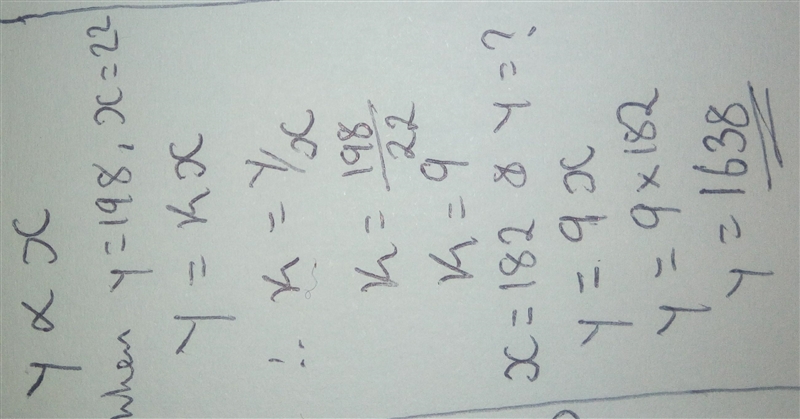 Y ∝ x
when Y = 198, x = 22
Y = kx
∴ k = Y/x
k = 198/22
k = 9
x = 182 8 Y = ?
Y = 9x
Y = 9 × 182
Y = 1638